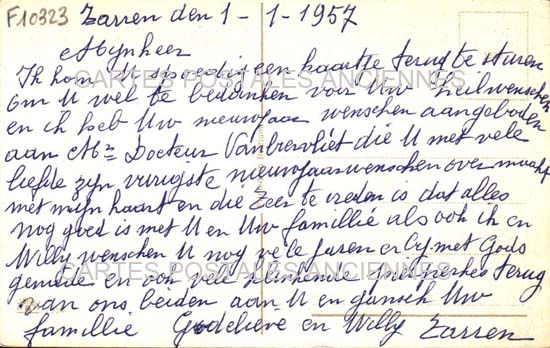 F10323 Zarren den 1 - 1 - 1957
Mynheer
Ik kom U spoedig een kaartje terug te sturen
om U wel te bedanken voor Uw heilwenschen
en ik heb Uw nieuwjaar wenschen aangeboden
aan Mr Docteur Vanbrervliet die U met vele
liefde zyn vurigste nieuwjaarwenschen over maakt
met mijn haart en die Zeer te vreden is dat alles
nog goed is met U en Uw famillie als ook ik en
Willy wenschen U nog vele jaren er by met Gods
genade en ook vele groetnertes terug
van ons beiden aan U en gansch Uw
famillie Godelieve en Willy Zarren
CARTES POSTALES ANCIENNES
CARTES POSTALES ANCIENNES